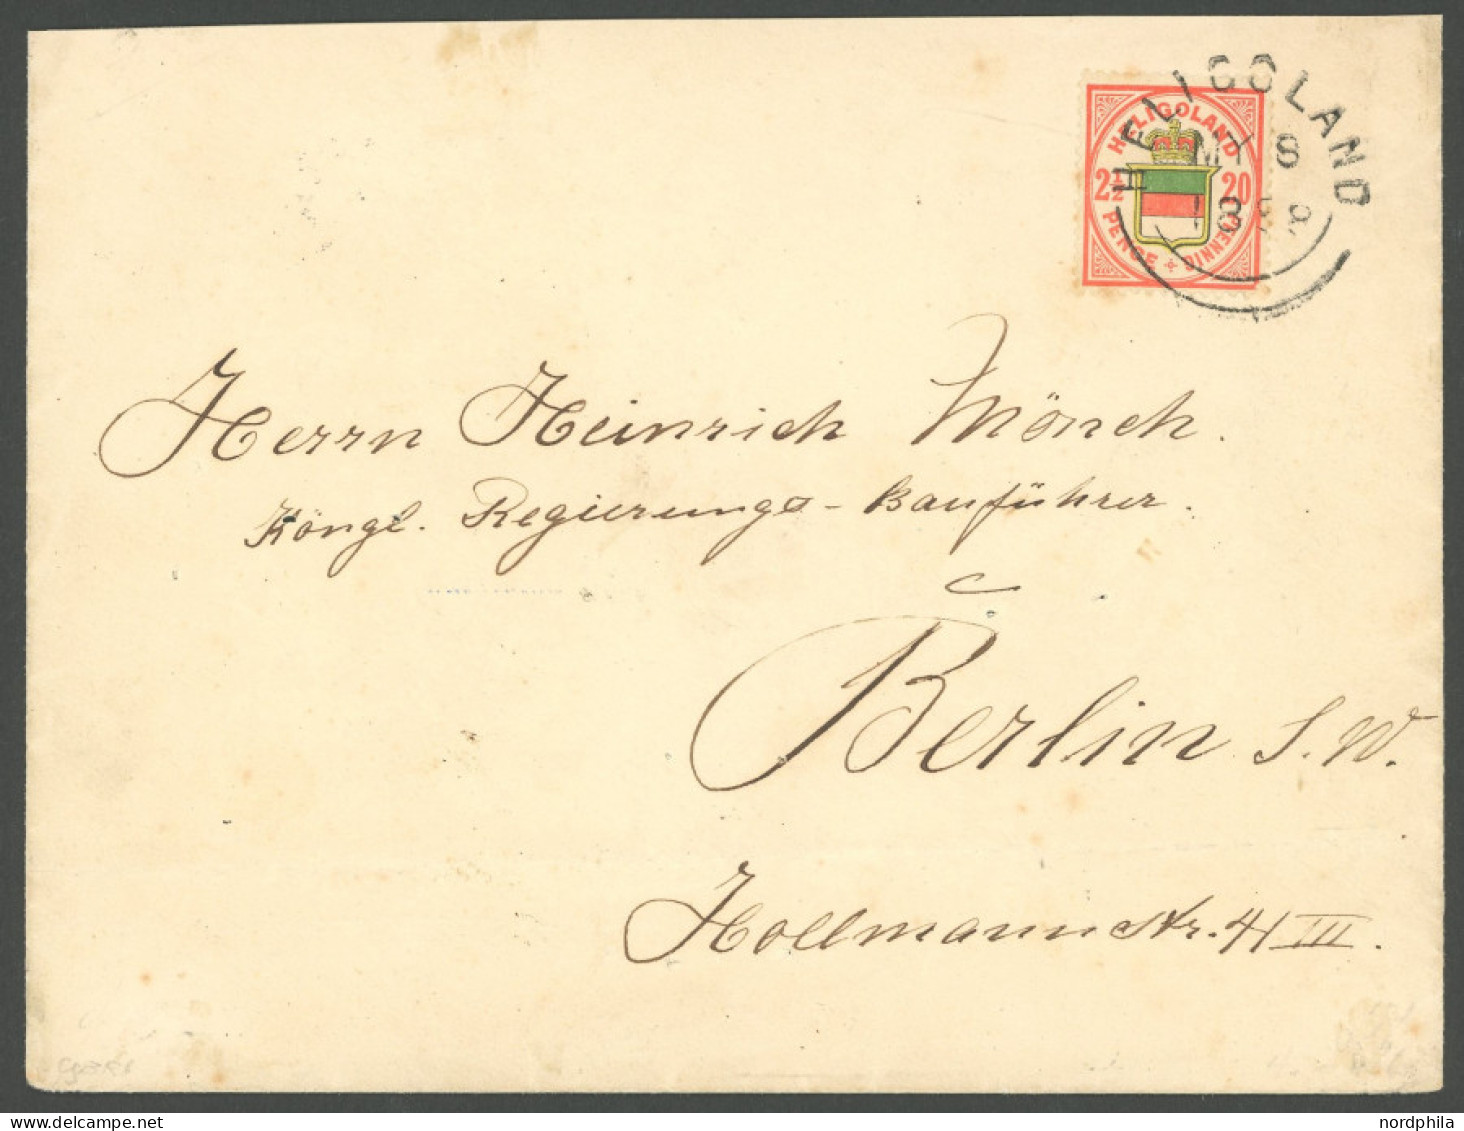 HELIGOLAND
HELIGOLAND
8
2½ 20
PENCE PFENNIG
Herrn Heinrich Mönch.
Köngl. Regierungs-Bauführer.
Berlin S.W.
Hollmannstr. 41 III.
nordphila